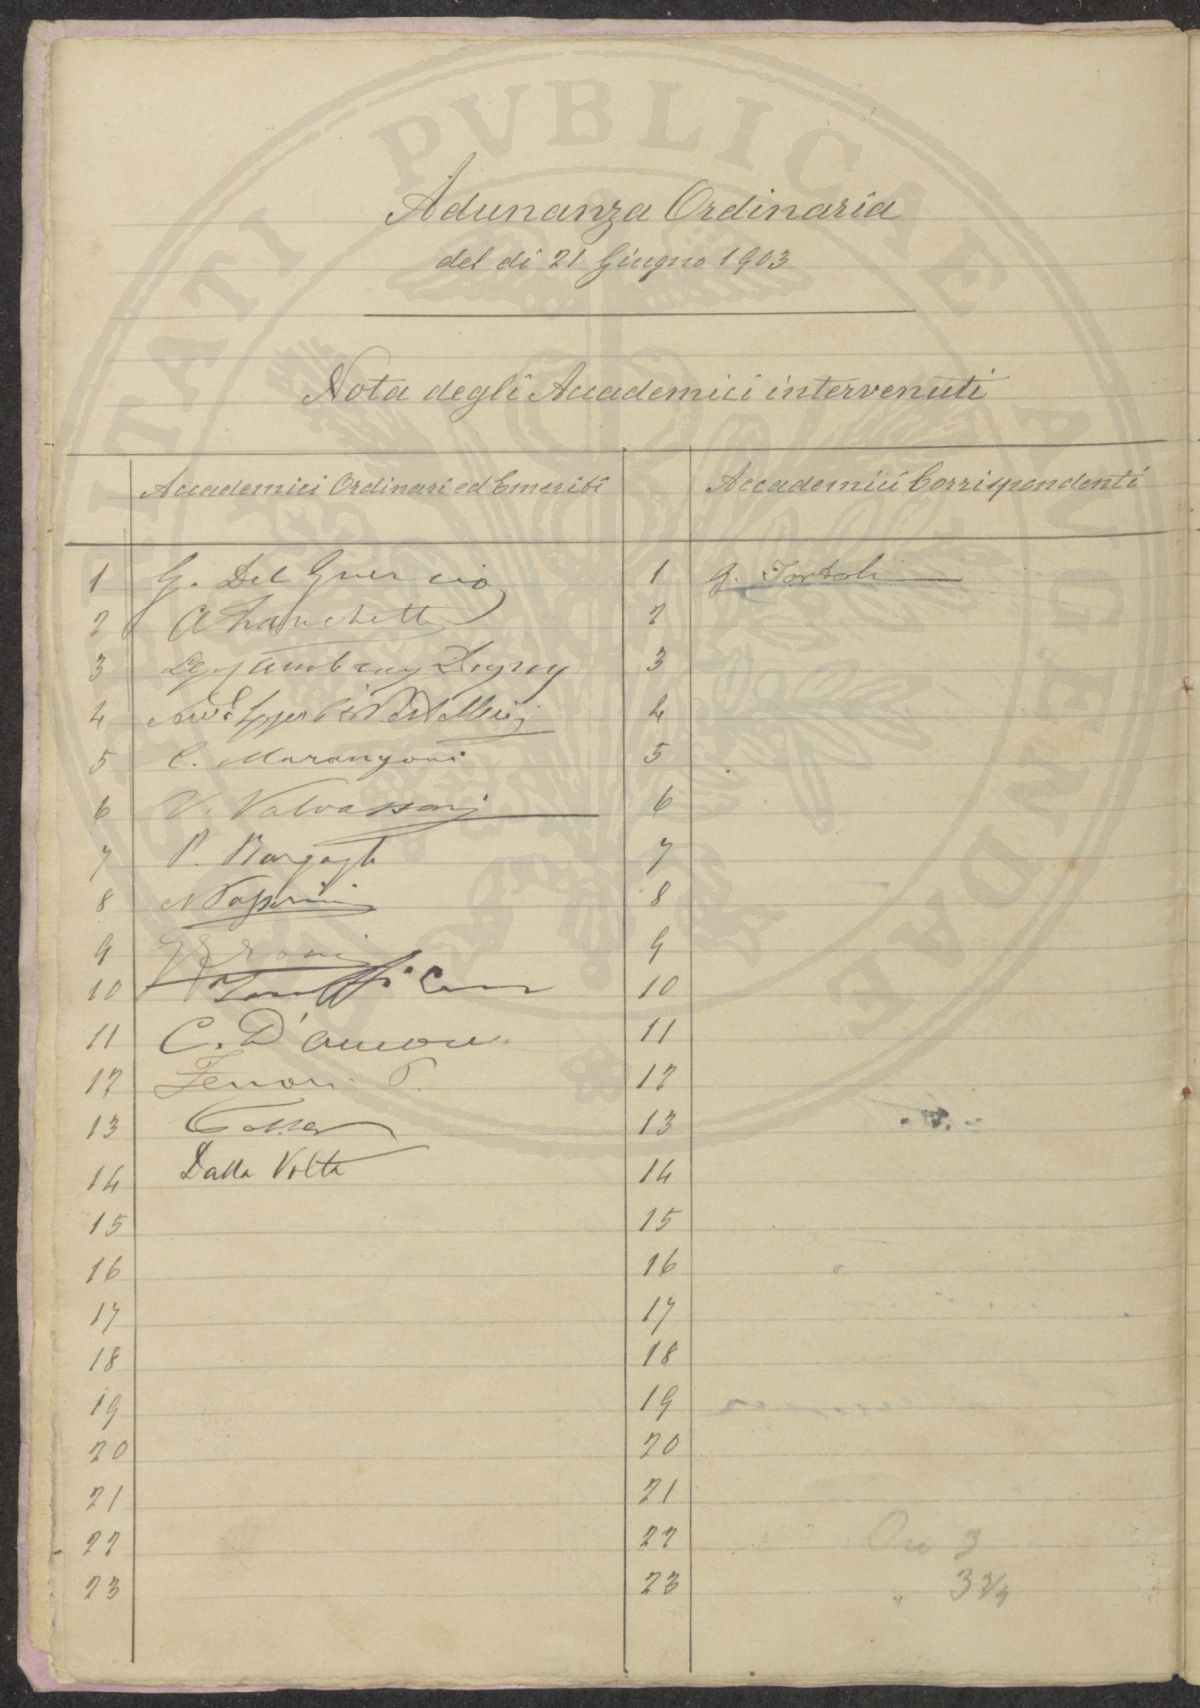 PVBLICAE
Adunanza Ordinaria
del dì 21 Giugno 1903
Nota degli Accademici intervenuti
Accademici Ordinari ed Emeriti
Accademici Corrispondenti
1 G. Del Guercio
1 G. Tortoli
2 A Franchetti
2
3
3
4
4
5 C. Marangoni
5
6 V. Valvassori
6
7 P. Bargagli
7
8 N Passerini
8
9
9
10
10
11 C. D'
11
12
12
13
13
14 Dalla Volta
14
15
15
16
16
17
17
18
18
19
19
20
20
21
21
22
22 Ore 3
23
23 " 3 3/4